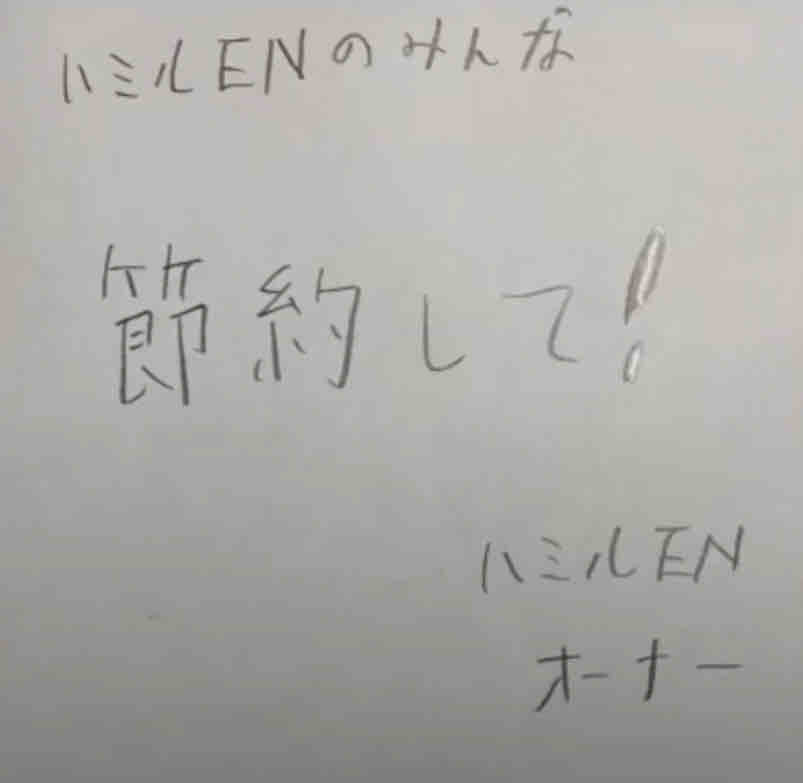 ハミルENのみんな
節約して!
ハミルEN
オーナー